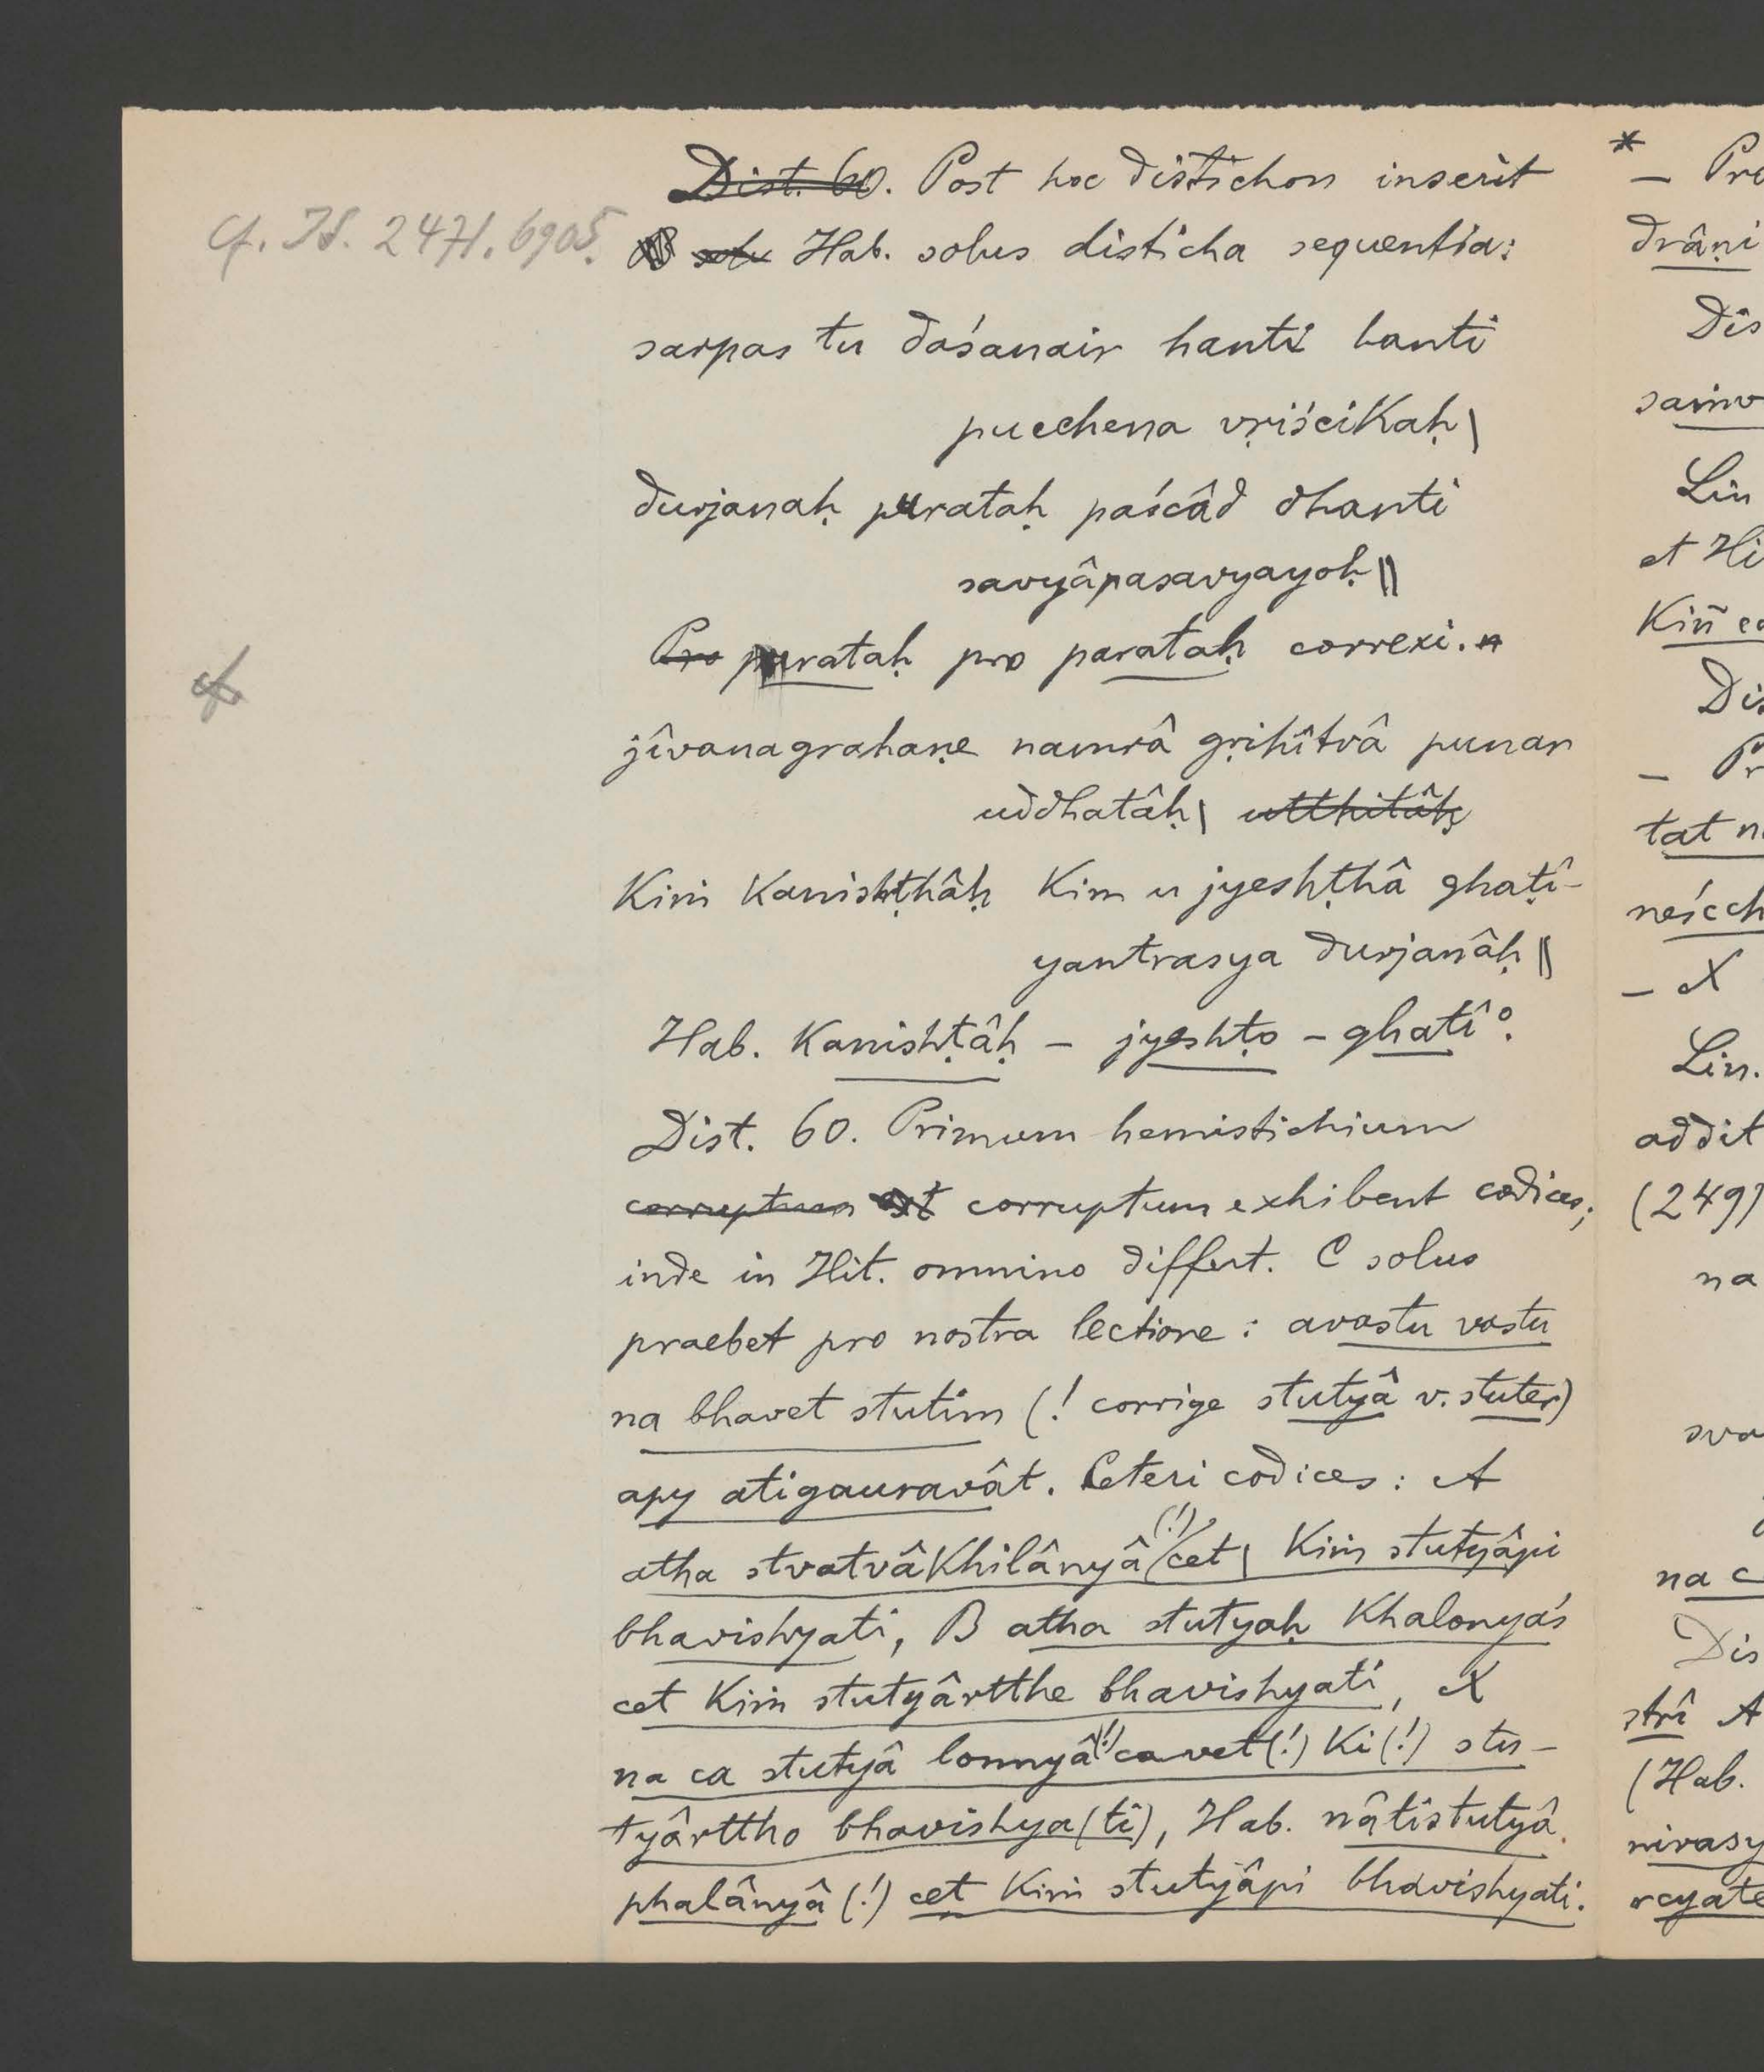 Dist. 60. Post hoc distichon inserit
cf. IS. 2471. 6905.
Hab. solus disticha sequentia:
sarpas tu daśanair hanti hanti
pucchena vṛiścikaḥ |
durjanaḥ purataḥ paścâd dhanti
savyâpasavyayoḥ ||
Pro purataḥ pro parataḥ correxi.
jîvanagrahaṇe namrâ gṛihîtvâ punar
uddhatâḥ | utthitâḥ
Kiṁ Kanishṭhâḥ Kim u jyeshṭhâ ghaṭî-
yantrasya durjanâḥ ||
Hab. Kanishṭâḥ – jyeshṭo – ghatî°.
Dist. 60. Primum hemistichium
corruptum est corruptum exhibent codices;
inde in Hit. omnino differt. C solus
praebet pro nostra lectione: avastu vastu
na bhavet stutim (! corrige stutyâ v. stuter)
apy atigauravât. Ceteri codices: A
atha stvatvâKhilânyâ (!) cet | Kiṁ stutyâpi
bhavishyati, B atha stutyaḥ Khalonyaś
cet Kiṁ stutyârtthe bhavishyati, X
na ca stutyâ lonnyâ (!) cavet (!) Ki (!) stu-
tyârttho bhavishya(ti), Hab. nâtistutyâ
phalânyâ (!) cet Kiṁ stutyâpi bhavishyati.
* – Pr
drâṇi
Dis
saṁv
Lin
et Hi
Kiñ ca
Dis
– Pr
tat n
neścch
– X
Lin.
addit
(249)
na
sva
na c
Dis
strî A
(Hab.
nirasy
rcyate